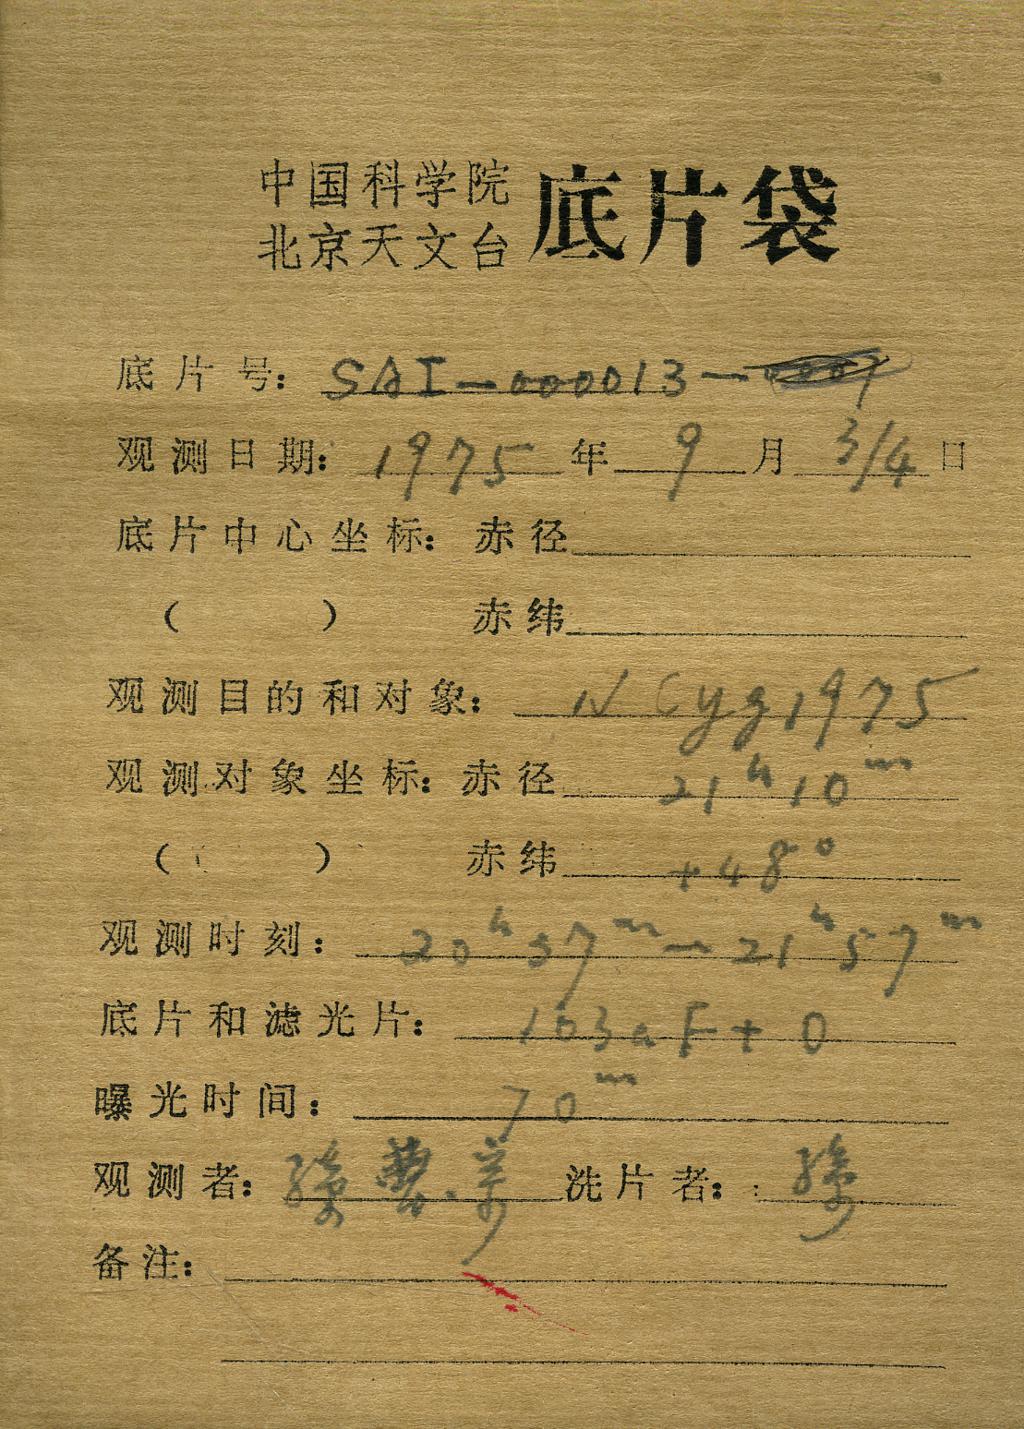 中国科学院
北京天文台 底片袋
底片号: SAI-000013-
观测日期: 1975 年 9 月 3/4 日
底片中心坐标: 赤径
( ) 赤纬
观测目的和对象: N Cyg 1975
观测对象坐标: 赤径 21ʰ10ᵐ
( ) 赤纬 +48°
观测时刻: 20ʰ37ᵐ-21ʰ57ᵐ
底片和滤光片: 103aF+0
曝光时间: 70ᵐ
观测者: 洗片者:
备注: